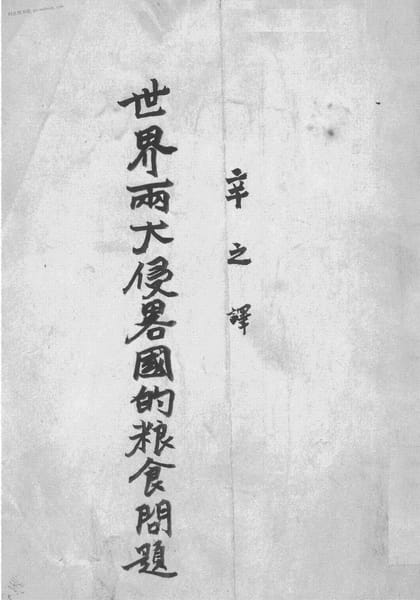 辛之譯
世界兩大侵畧國的粮食問題